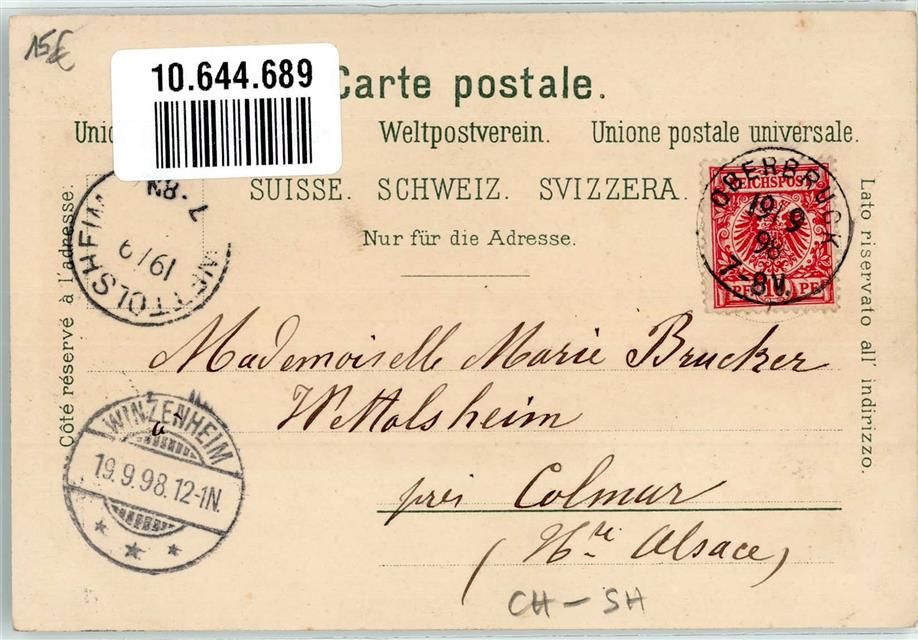 15£
10.644.689
Carte postale.
Weltpostverein. Unione postale universale.
SUISSE. SCHWEIZ. SVIZZERA.
Nur für die Adresse.
Côté réservé à l'adresse.
Lato riservato all' indirizzo.
REICHSPOST
10 PF
OBERBRUCK
19/9
98
7-8V.
WETTOLSHEIM
19/9
7-8N
Mademoiselle Marie Brucker
à Wettolsheim
près Colmar
(Hte Alsace)
WINZENHEIM
19.9.98.12-1N.
CH-SH